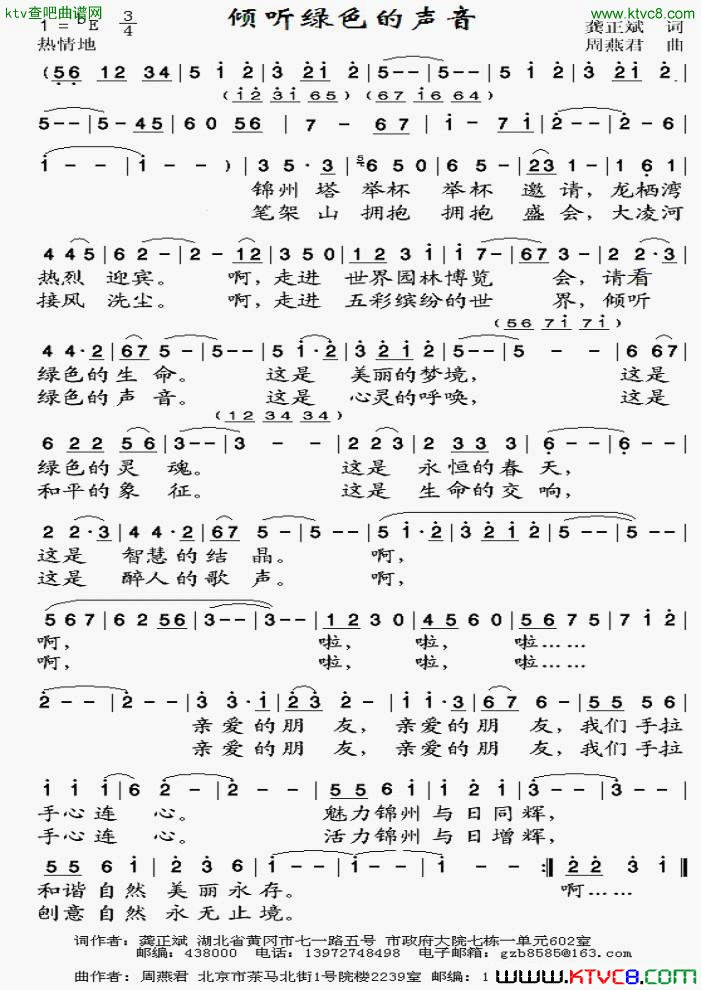 ktv查吧曲谱网
www.ktvc8.com
倾听绿色的声音
1=bE 3/4
热情地
龚正斌 词
周燕君 曲
(56 12 34|5 i 2|3 2i 2|5--|5--|5 i 2|3 2i 2|
(i2 3i 65) (67 i6 64)
5--|5-45|60 56|7-67|i-7i|2--|2-6|
i--|i--)|3 5·3|5 6 50|6 50|23 1-|1 6 1|
锦州塔举杯举杯邀请,龙栖湾
笔架山拥抱拥抱盛会,大凌河
4 45|62-|2-12|350|12 3i|i7-|673-|2 2·3|
热烈迎宾。啊,走进世界园林博览会,请看
接风洗尘。啊,走进五彩缤纷的世界,倾听
(56 7i 7i)
4 4·2|67 5-|5--|5 i·2|3 2i 2|5--|5--|6 67|
绿色的生命。这是美丽的梦境,这是
绿色的声音。这是心灵的呼唤,这是
(12 34 34)
6 22 56|3--|3--|2 23|2 33 3|6--|6--|
绿色的灵魂。这是永恒的春天,
和平的象征。这是生命的交响,
2 2·3|4 4·2|67 5-|5--|5 i·2|3 2i 2|5--|5--|
这是智慧的结晶。啊,
这是醉人的歌声。啊,
567|62 56|3--|3--|12 30|45 60|56 75|7i2|
啊,啦,啦,啦……
啊,啦,啦,啦……
2--|2--|3 3·i|23 2-|i i·3|67 6-|55 56|
亲爱的朋友,亲爱的朋友,我们手拉
亲爱的朋友,亲爱的朋友,我们手拉
i i i|6 2-|2--|55 6i|2 i2|3--|3--|
手心连心。魅力锦州与日同辉,
手心连心。活力锦州与日增辉,
55 6i|2 36|i--|i--|i--:‖22 3--‖
和谐自然美丽永存。啊……
刨意自然永无止境。
词作者: 龚正斌 湖北省黄冈市七一路五号 市政府大院七栋一单元602室
邮编: 438000 电话: 13972748498 电子邮箱: gzb8585@163.com
曲作者: 周燕君 北京市茶马北街1号院楼2239室 邮编: 1
www.KTVC8.com